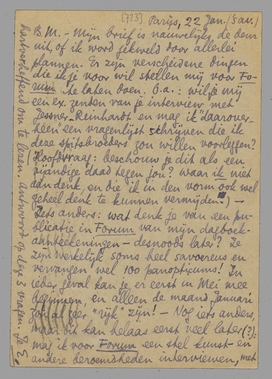 [723] Parijs, 22 Jan. (s'av.)
B.M. - Mijn brief is nauwelijks de deur
uit, of ik word gekweld door allerlei
plannen. Er zijn verscheidene dingen
die ik je voor wil stellen mij voor Fo-
rum te laten doen, o.a.: wil je mij
een ex. zenden van je interview met
Jessner, Reinhardt en mag ik daarover
heen een vragenlijst schrijven die ik
deze spitsbroeders zou willen voorleggen?
(Hoofdvraag: beschouw je dit als een
vijandige daad tegen jou? waar ik niet
aan denk, en die ik in den vorm ook wel
geheel denk te kunnen vermijden!) -
Iets anders: wat denk je van een pu-
blicatie in Forum van mijn dagboek-
aanteekeningen - desnoods later? Ze
zijn werkelijk soms heel savoureus en
vervangen wel 100 panopticums! In
ieder geval kan je er eerst in Mei mee
beginnen, en alleen de maand Januari
zal al zeer "rijk" zijn! - Nog iets anders,
maar dit kan helaas eerst veel later(?):
mag ik voor Forum een stel kunst- en
andere beroemdheden interviewen, met
hartverheffend om te lezen. Antwoord op deze 3 vragen. Je E.